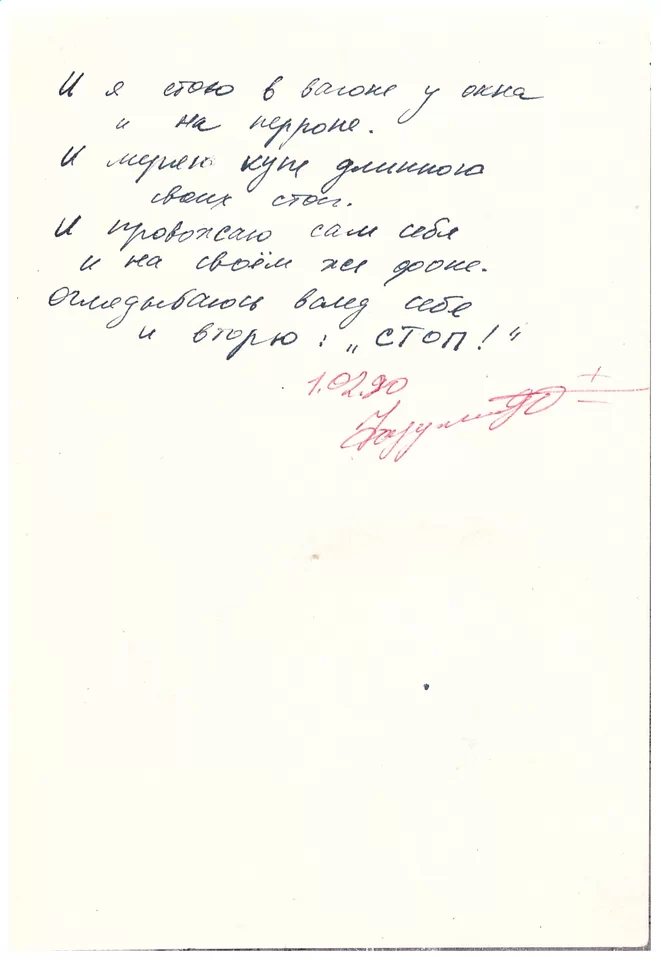 И я стою в вагоне у окна
и на перроне.
И меряю купе длинною
своих стоп.
И провожаю сам себя
и на своём же фоне.
Оглядываюсь вслед себе
и вторю: „СТОП!“
1.02.90